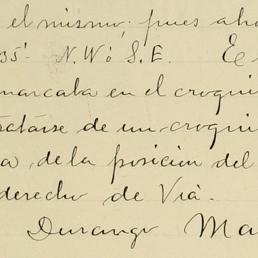 el mismo, pues aho
35' N.W ó S.E. E
marcaba en el croqui
tratarse de un croqui
a, de la posición del
derecho de Via.
Durango Ma